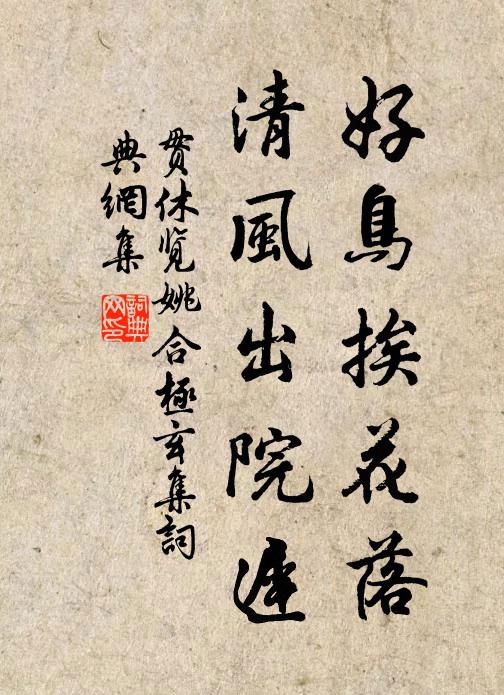 好鳥挨花落
清風出院遲
貫休覽姚合極玄集詞
典網集
詞典
网印